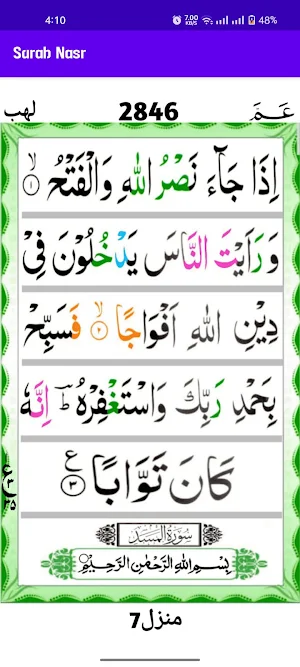 4:10 7.00 KB/S 48%
Surah Nasr
لهب 2846 عَمَّ
اِذَا جَآءَ نَصْرُ اللّٰهِ وَالْفَتْحُ ۙ﴿۱﴾
وَرَاَيْتَ النَّاسَ يَدْخُلُوْنَ فِيْ
دِيْنِ اللّٰهِ اَفْوَاجًا ۙ﴿۲﴾ فَسَبِّحْ
بِحَمْدِ رَبِّكَ وَاسْتَغْفِرْهُ ؕ اِنَّهٗ
كَانَ تَوَّابًا ﴿۳﴾ ع
سُوْرَةُ الْمَسَدِ
بِسْمِ اللّٰهِ الرَّحْمٰنِ الرَّحِيْمِ
منزل7